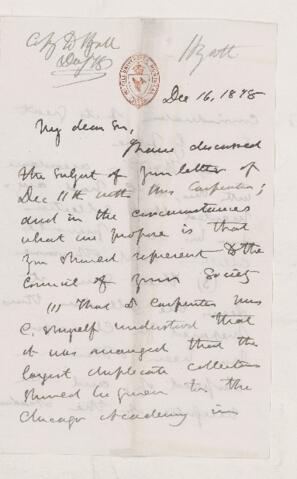 Hyatt
Dec 16, 1878
My dear Sir,
I have discussed
the subject of your letter of
Dec 11th with Mrs Carpenter;
and in the circumstances
what we propose is that
you should represent to the
Council of your Society
(1) That Dr Carpenter Mrs
C. & myself understood that
it was arranged that the
largest duplicate collection
should be given to the
Chicago Academy in